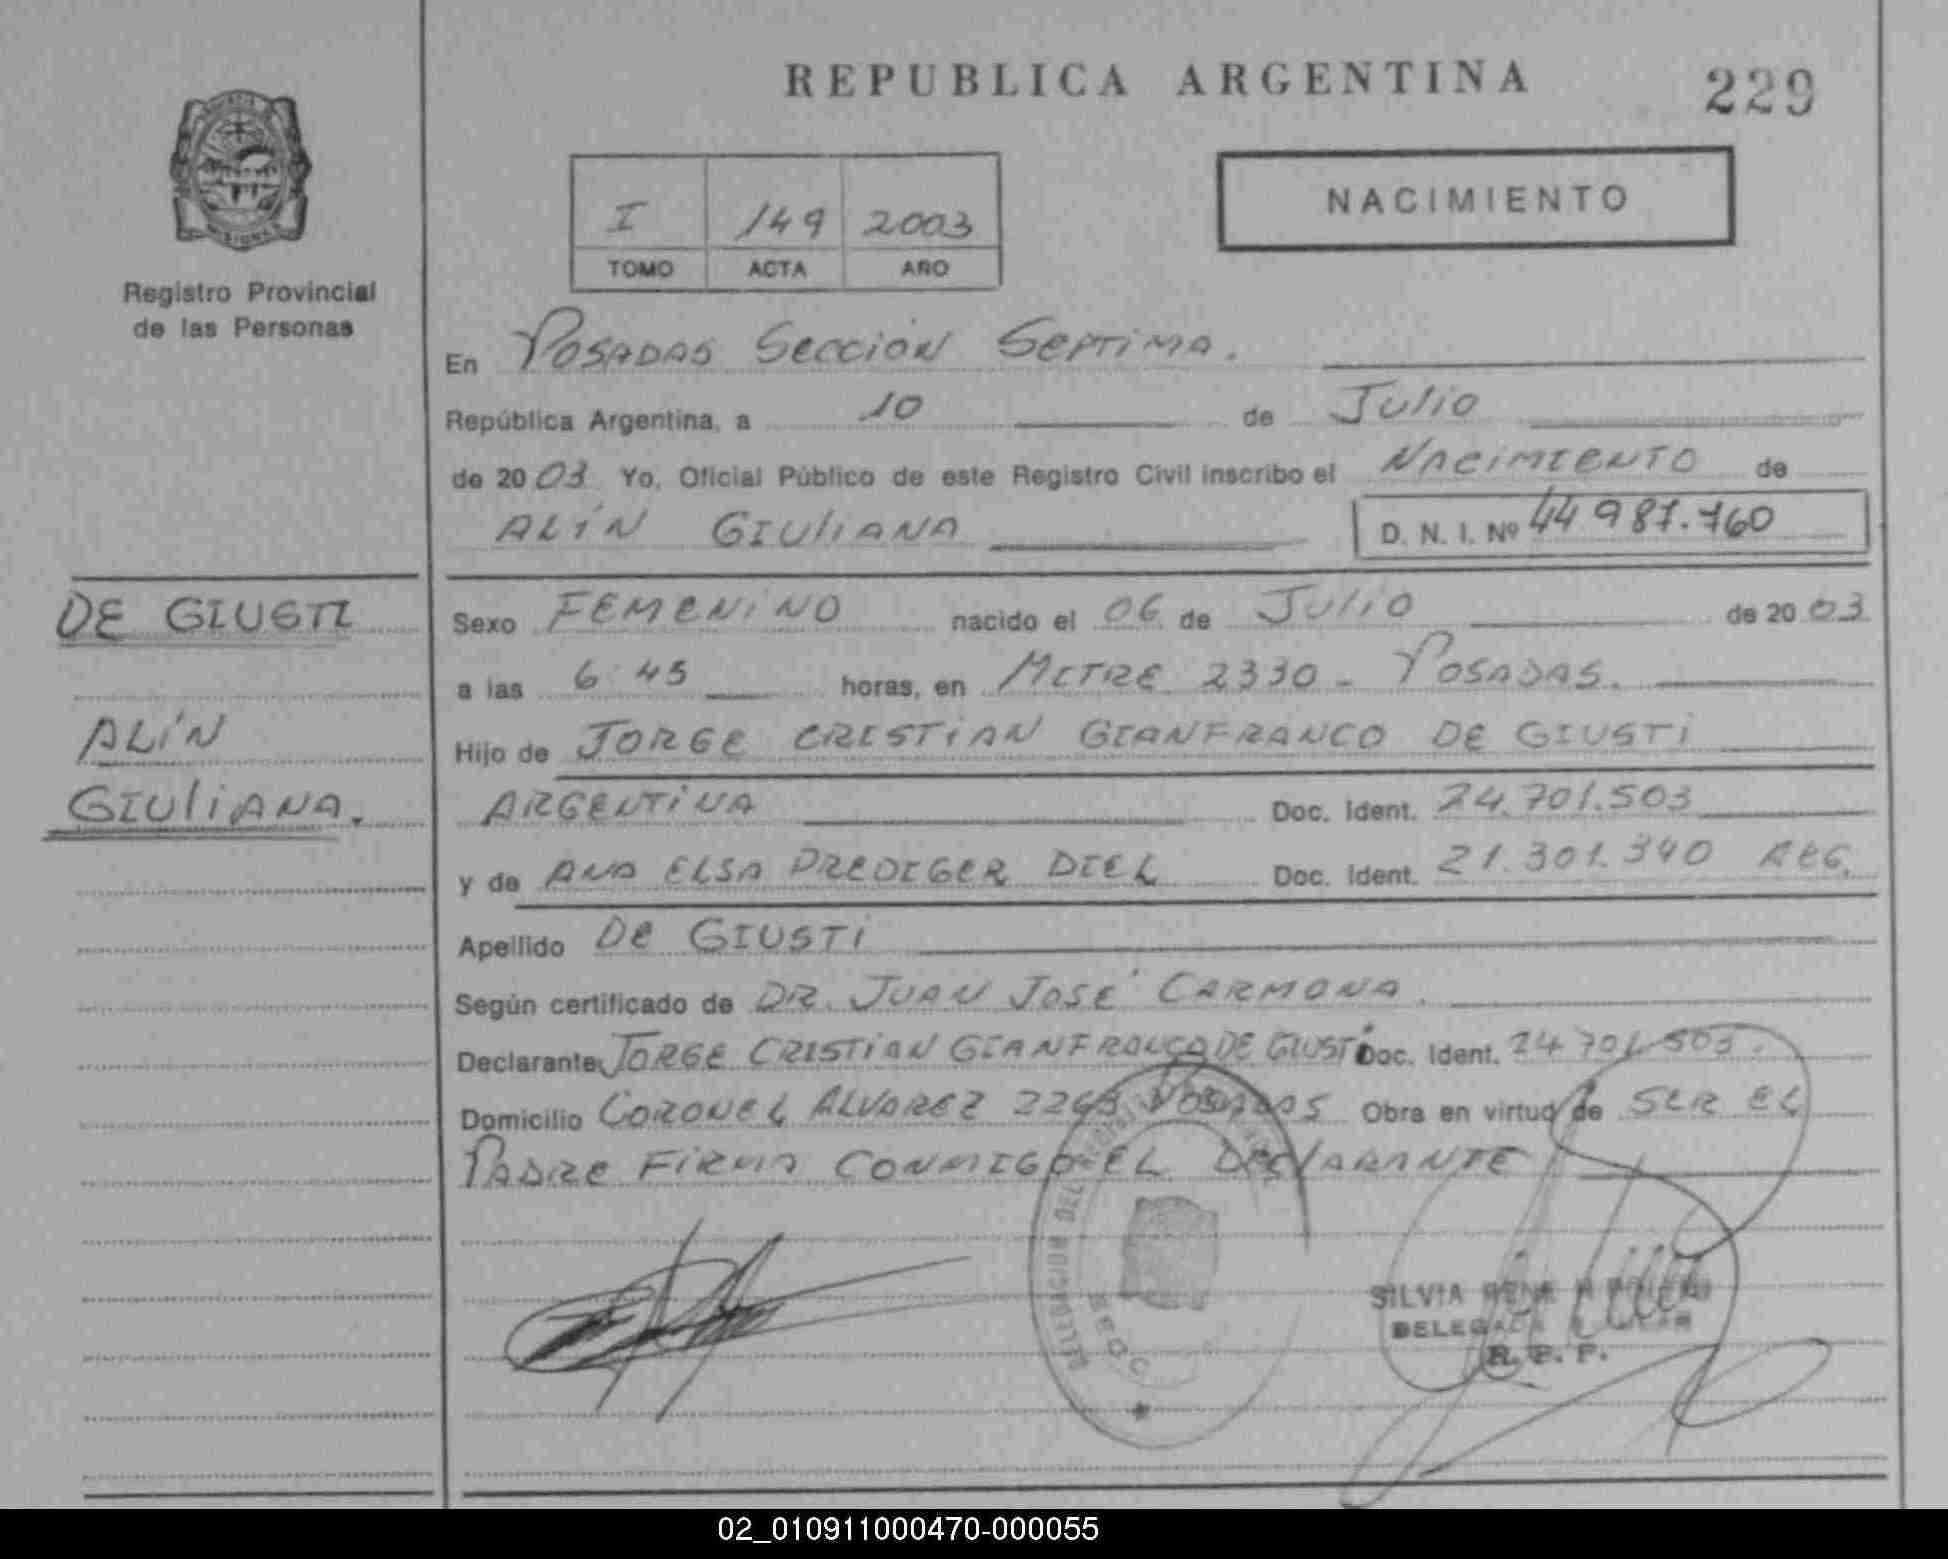 REPUBLICA ARGENTINA
229
MISIONES
Registro Provincial
de las Personas
I 149 2003
TOMO ACTA AÑO
NACIMIENTO
En POSADAS SECCIÓN SEPTIMA.
República Argentina, a 10 de Julio
de 2003 Yo, Oficial Público de este Registro Civil inscribo el NACIMIENTO de
ALÍN GIULIANA
D. N. I. Nº 44 987.760
DE GIUSTI
ALÍN
GIULIANA.
Sexo FEMENINO nacido el 06 de Julio de 2003
a las 6:45 horas, en MITRE 2330 - POSADAS.
Hijo de JORGE CRISTIAN GIANFRANCO DE GIUSTI
ARGENTINA Doc. Ident. 24.701.503
y de ANA ELSA PREDIGER DIEL Doc. Ident. 21.301.340 ARG.
Apellido DE GIUSTI
Según certificado de DR. JUAN JOSÉ CARMONA.
Declarante JORGE CRISTIAN GIANFRANCO DE GIUSTI Doc. Ident. 24 701.503.
Domicilio CORONEL ALVAREZ POSADAS Obra en virtud de SER EL
PADRE FIRMA CONMIGO EL DECLARANTE
DELEGACION DEL
SECC
SILVIA
DELEGADA
R. P. P.
02_010911000470-000055